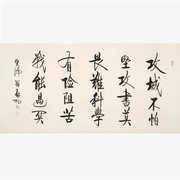 攻城不怕
堅攻書莫
畏難科學
有險阻苦
戰能過關